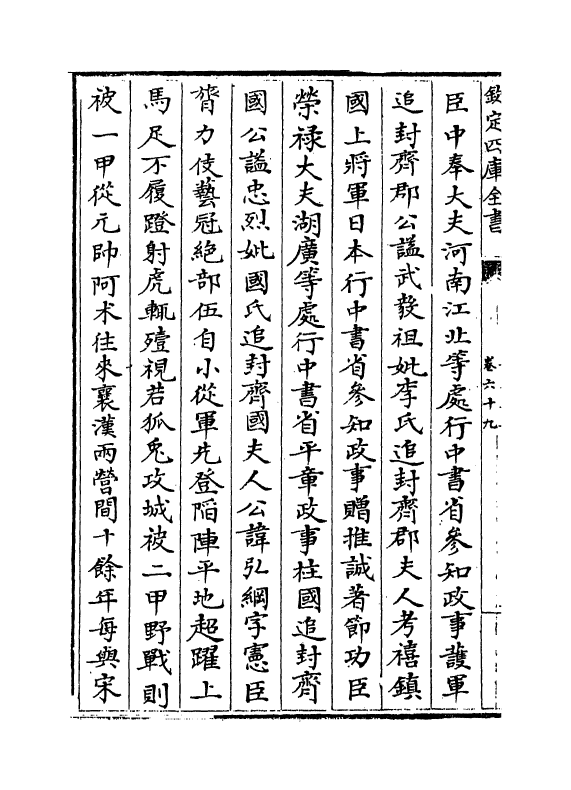 欽定四庫全書
卷六十九
臣中奉大夫河南江北等處行中書省參知政事護軍
追封齊郡公諡武毅祖妣李氏追封齊郡夫人考禧鎮
國上將軍日本行中書省參知政事贈推誠著節功臣
榮禄大夫湖廣等處行中書省平章政事柱國追封齊
國公諡忠烈妣國氏追封齊國夫人公諱弘綱字憲臣
膂力伎藝冠絶部伍自小從軍先登陷陣平地超躍上
馬足不履蹬射虎輒殪視若狐兎攻城被二甲野戰則
被一甲從元帥阿术往來襄漢兩營間十餘年每與宋